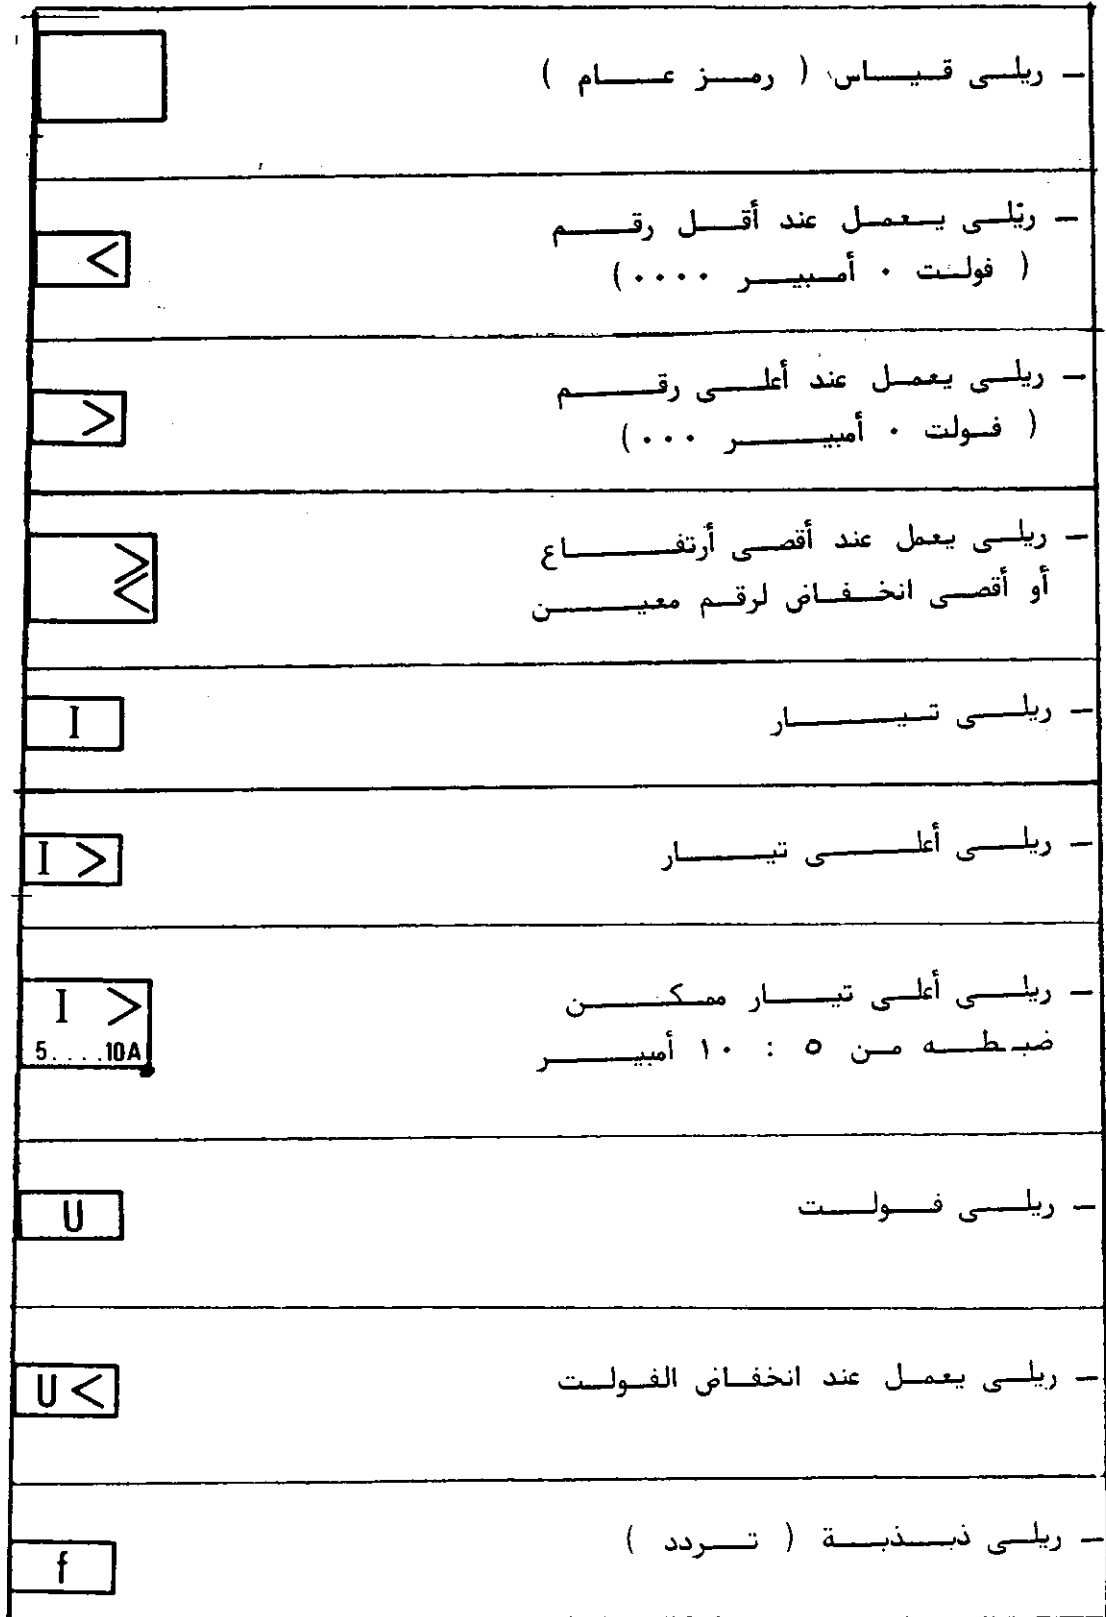 - ريلى قياس ( رمز عام )
- ريلى يعمل عند أقل رقم
<
( فولت ٠ أمبير ٠٠٠٠ )
- ريلى يعمل عند أعلى رقم
>
( فولت ٠ أمبير ٠٠٠ )
- ريلى يعمل عند أقصى أرتفاع
>
أو أقصى انخفاض لرقم معين
<
- ريلى تيار
I
- ريلى أعلى تيار
I >
- ريلى أعلى تيار ممكن
I >
ضبطه من ٥ : ١٠ أمبير
5....10A
- ريلى فولت
U
- ريلى يعمل عند انخفاض الفولت
U <
- ريلى ذبذبة ( تردد )
f